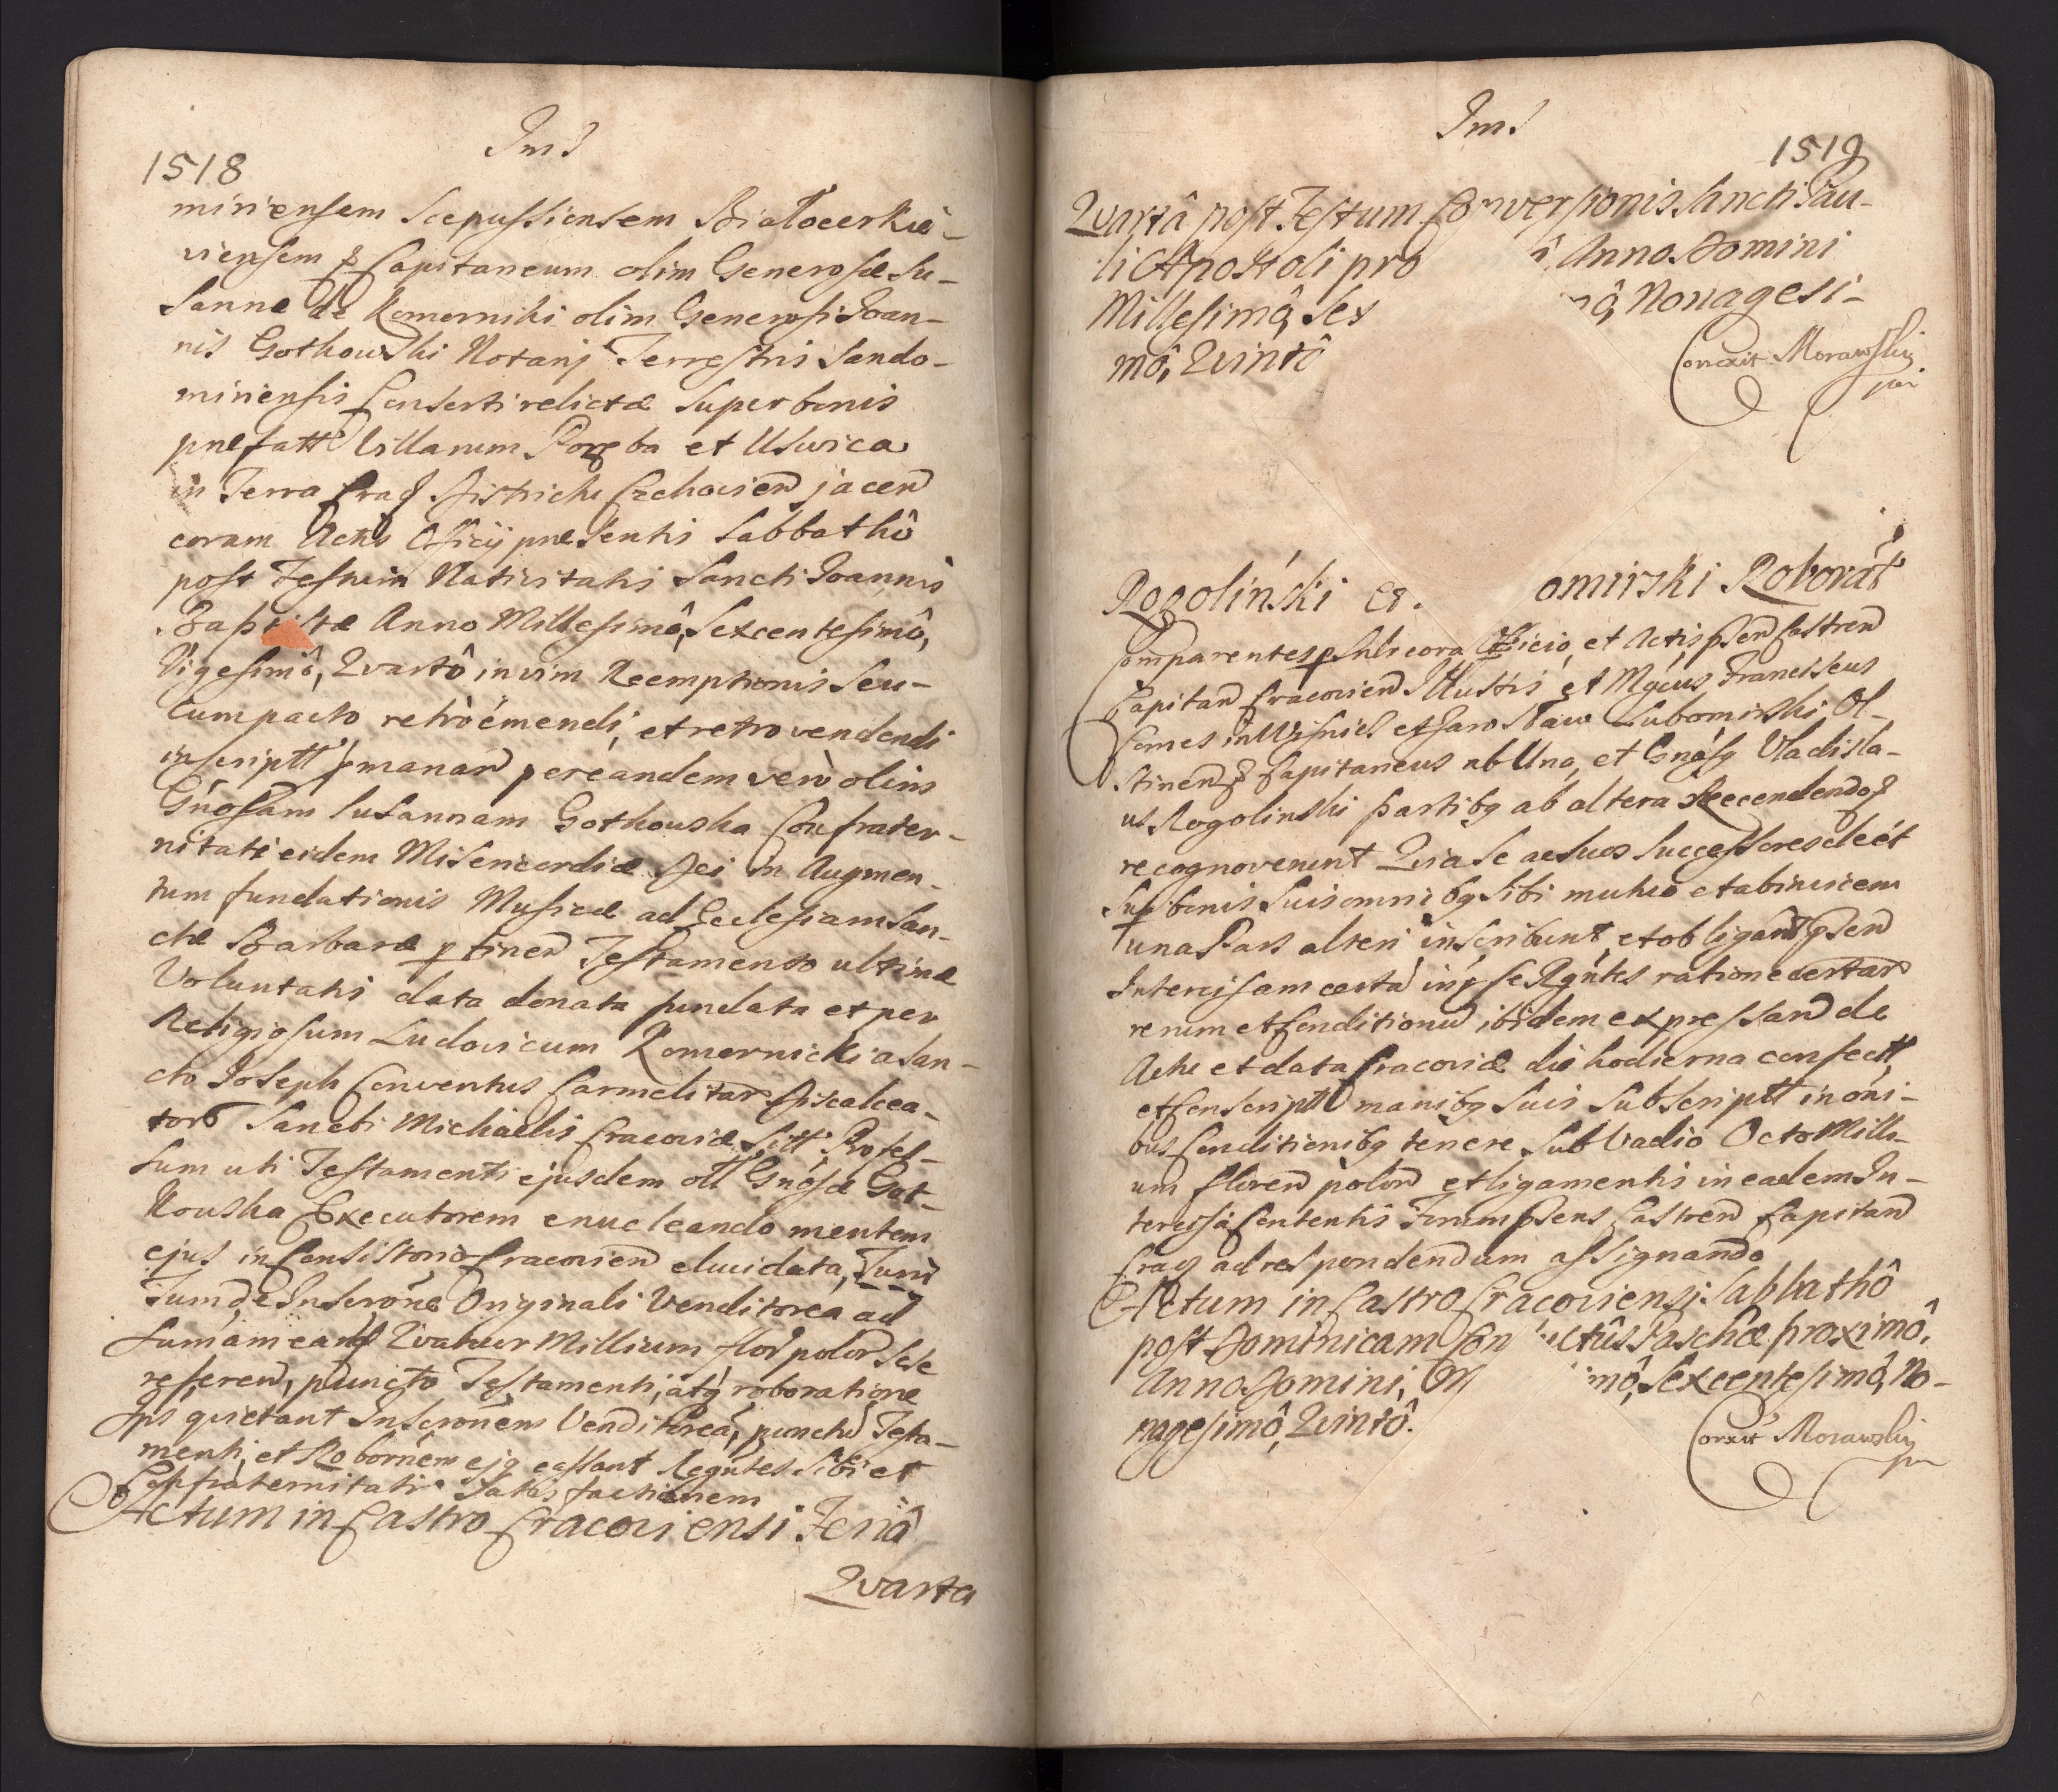 Ind
1518
miriensem Scepussiensem Białocerkie-
viensem Capitaneum olim Generosæ Su-
sannæ de Komorniki olim Generosi Joan-
nis Gothowski Notarij Terrestris Sando-
miriensis Consorti relictæ super bonis
præfatt Villarum Poręba et Uswica
in Terra Crac Districtu Czchovien jacen
coram Actis Officij præsentis Sabbathô
post Festum Nativitatis Sancti Joannis
Baptistæ Anno Millesimô, Sexcentesimô,
Vigesimô, Quartô in vim Reemptionis seu
cum pacto retrò émendi, et retro vendendi
inscriptt manan per eandem verò olim
Gnosam Susannam Gothouska Confrater-
nitati eidem Misericordiæ Dei in Augmen-
tum fundationis Musicæ ad Ecclesiam San-
ctæ Barbaræ ptinen Testamento ultimæ
Voluntatis data donata fundata et per
Religiosum Ludovicum Komornicki a San-
cto Joseph Conventus Carmelitar Discalcea-
tor Sancti Michaelis Cracoviæ Sitti Profes-
sum uti Testamenti ejusdem oll Gnosæ Got-
kouska Executorem enucleando mentem
ejus in Consistorio Cracovien elucidata, Tum
Tum de Inscrône Originali Venditorea ad
Sumam eand Quatuor Millium flor polon Sese
referen, puncto Testamenti, atq roboratione
Ips quietant Inscronem Venditorea, punctu Testa-
menti, et Roborném ejq cassant Regntes Sibi et
Confraternitati Satisfactionem
Actum in Castro Cracoviensi Feriâ
Quarta
Ind
1519
Quartâ post Festum Conversionis Sancti Pau-
li Apostoli pro â Anno Domini
Millesimô, Sex mô, Nonagesi-
mô, Quintô
Correxit Morawski
Rogoliński Et omirski Roborat
Comparentes psnlr cora Officio, et Actis psen Castren
Capitan Cracovien Illustris et Mgcus Franciscus
Comes in Wisnicz et Jarosław Lubomirski Ol-
stinen Capitaneus ab Una, et Gnosq Vladisla-
us Rogolinski partibq ab altera
recognoverunt Quia Se ac suos Successores de et
Sup bonis Suis omnibq Sibi mutuo et abinvicem
una Pars alteri inscribunt, et obligant psen
Intercisam certa inter se Rgntes ratione certar
rerum et Conditionu ibidem expressan de
Actu et data Cracoviæ die hodierna confectt
et Conscriptt manibq Suis Subscriptt in oni-
bus Conditionibq tenere Sub Vadio Octo Milli-
um floren polon et ligamentis in eadem In-
tercisa Contentis Forum psens Castren Capitan
Crac ad respondendum assignando
Actum in Castro Cracoviensi Sabbathô
post Dominicam Con uctûs Paschæ proximô,
Anno Domini, M imô, Sexcentesimô, No-
nagesimô, Quintô.
Correxit Morawski